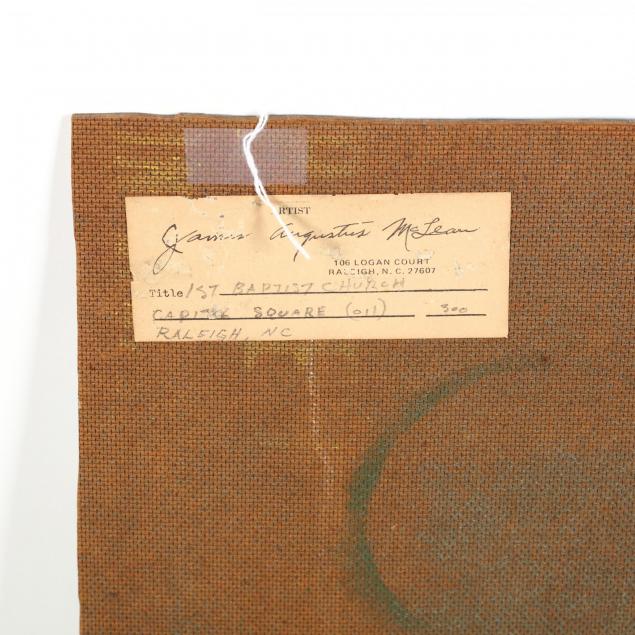 ARTIST
James Augustus McLean
106 LOGAN COURT
RALEIGH, N.C. 27607
Title 1ST BAPTIST CHURCH
SQUARE (OIL) 300
RALEIGH, NC